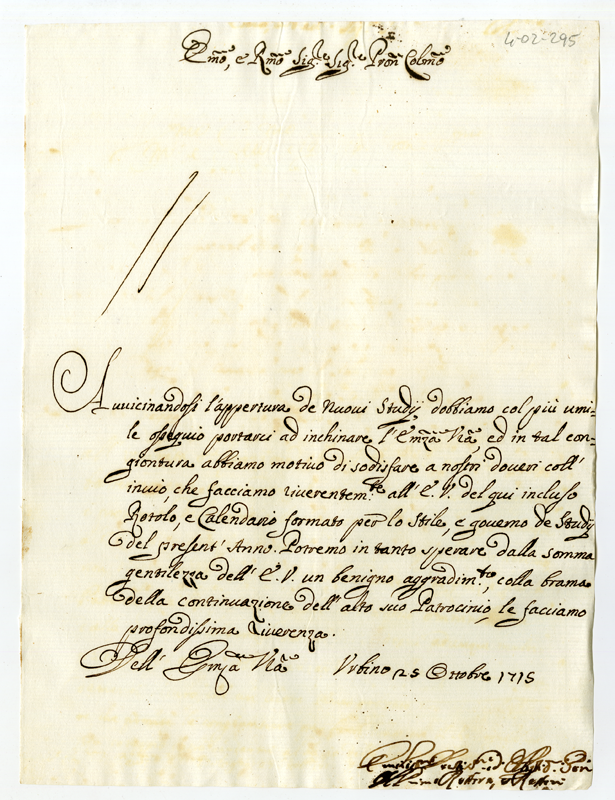 4-02-295
Emõ, e Rmõ Sig.re Sig.re Prõn Colmõ
Avvicinandosi l'appertura de Nuovi Studij dobbiamo col più umi=
le ossequio portarci ad inchinare l'Emza Vrã ed in tal con=
giontura abbiamo motivo di sodisfare a nostri doveri coll'
invio, che facciamo riverentem.te all'E.V. del qui incluso
Rotolo, e Calendario formato per lo Stile, e governo de Study
del present'Anno. Potremo in tanto sperare dalla somma
gentilezza dell'E.V. un benigno aggradim.to, colla brama
della continuazione dell'alto suo Patrocinio, le facciamo
profondissima riverenza.
Dell' Emza Vrã Urbino 25 Ottobre 1715